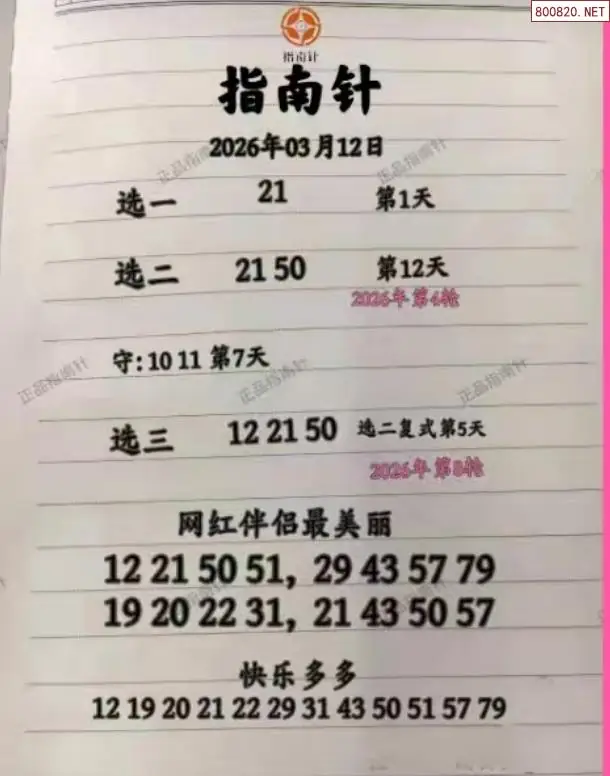 800820.NET
指南针
指南针
2026年03月12日
选一 21 第1天
选二 21 50 第12天
2026年 第4轮
守: 10 11 第7天
正品指南针
正品指南针
正品指南针
选三 12 21 50 选二复式第5天
2026年 第8轮
网红伴侣最美丽
12 21 50 51, 29 43 57 79
19 20 22 31, 21 43 50 57
快乐多多
12 19 20 21 22 29 31 43 50 51 57 79